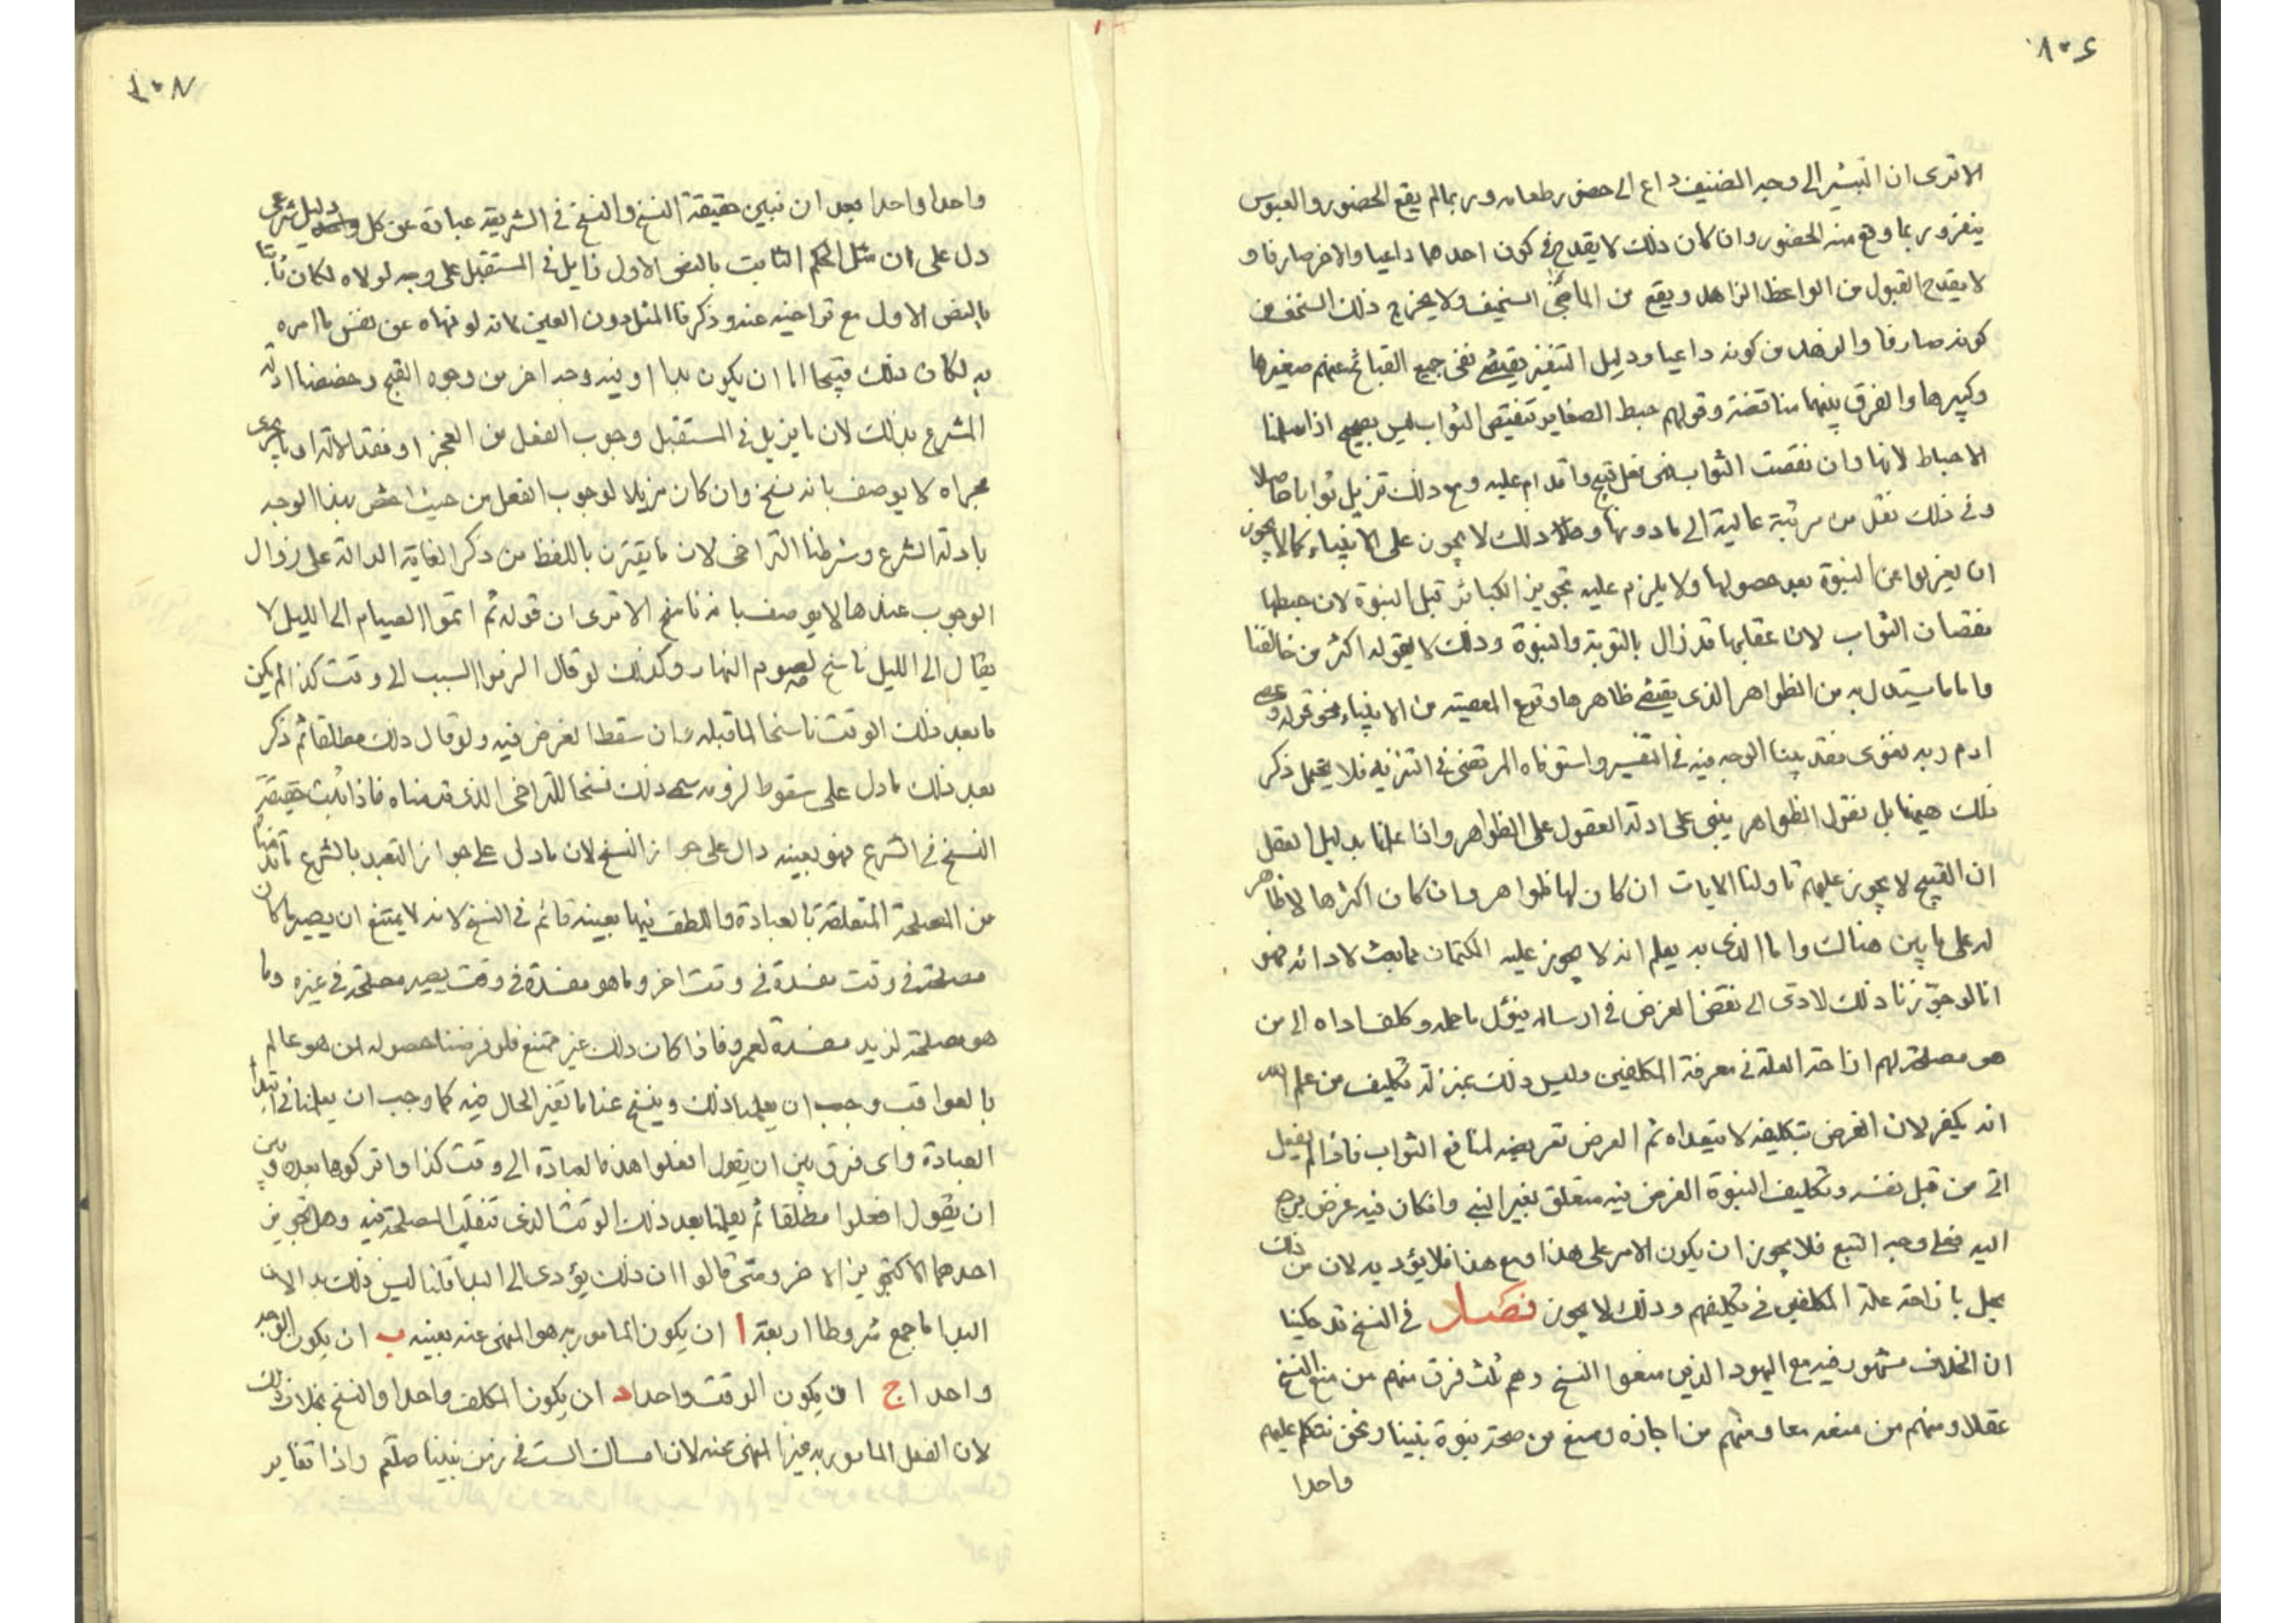 ١٠٦
الا ترى ان التبشير الى وجه الضيف داع الى حضور طعامه وربما لم يقع الحضور والعبوس
ينفر وربما وقع منه الحضور وان كان ذلك لا يقدح فى كون احدهما داعيا والاخر صارفا و
لا يقدح القبول من الواعظ الزاهد ويقع من الماجن السخيف ولا يخرج ذلك السخف من
كونه صارفا والزهد من كونه داعيا ودليل التنفير يقتضى نفى جميع القبائح عنهم صغيرها
وكبيرها والفرق بينهما مناقضة وقولهم حبط الصغاير تنقيص الثواب ليس بصحيح اذا سلمنا
الاحباط لانها وان نقصت الثواب فهى فعل قبيح واقدام عليه ومع ذلك تزيل ثوابا حاصلا
وفى ذلك نقل من مرتبة عالية الى ما دونها وذلك لا يجوز على الانبياء كما لا يجوز
ان يعزلوا عن النبوة بعد حصولها ولا يلزم عليه تجويز الكبائر قبل النبوة لان حبطها
نقصان الثواب لان عقابها قد زال بالتوبة والنبوة وذلك لا يقوله اكثر من خالفنا
واما ما يستدل به من الظواهر الذى يقتضى ظاهرها وقوع المعصية من الانبياء نحو قوله وعصى
ادم ربه فغوى فقد بينا الوجه فيه فى التفسير واستوفاه المرتضى فى التنزيه فلا يحتمل ذكر
ذلك هيهنا بل نقول الظواهر يبنى على ادلة العقول على الظواهر واذا علمنا بدليل العقل
ان القبيح لا يجوز عليهم تاولنا الايات ان كان لها ظواهر وان كان اكثرها لا ظاهر
له على ما بين هنالك واما الذى به يعلم انه لا يجوز عليه الكتمان مما بعث لادائه فهو
انا لو جوّزنا ذلك لادى الى نقض الغرض فى ارساله فيؤل ما حمله وكلف اداه الى من
هو مصلحة لهم ازاحة العلة فى معرفة المكلفين وليس ذلك بمنزلة تكليف من علم الله
انه يكفر لان الغرض بتكليفه لا يتعداه ثم الغرض تعريضه لمنافع الثواب فاذا لم يفعل
اتى من قبل نفسه وتكليف النبوة الغرض فيه متعلق بغير النبى وان كان فيه غرض يرجع
اليه فعلى وجه التبع فلا يجوز ان يكون الامر على هذا ومع هذا فلا يؤديه لان من ذلك
يخل بازاحة علة المكلفين فى تكليفهم وذلك لا يجوز فصل فى النسخ قد حكينا
ان الخلاف مشهور فيه مع اليهود الذين منعوا النسخ وهم ثلث فرق منهم من منع النسخ
عقلا ومنهم من منعه سمعا ومنهم من اجازه ومنع من صحة نبوة نبينا ونحن نتكلم عليهم
واحدا
١٠٧
واحدا واحدا بعد ان نبين حقيقة النسخ والنسخ فى الشريعة عبارة عن كل دليل شرعى
دل على ان مثل الحكم الثابت بالنص الاول زايل فى المستقبل على وجه لولاه لكان ثابتا
بالنص الاول مع تراخيه عنه وذكرنا المثل دون العين لانه لو نهاه عن نفس ما امره
به لكان ذلك قبيحا اما ان يكون بدا او فيه وجه اخر من وجوه القبح وخصصنا ادلة
الشرع بذلك لان ما يزيل فى المستقبل وجوب الفعل من العجز او فقد الالة او ما يجرى
مجراه لا يوصف بانه نسخ وان كان مزيلا لوجوب الفعل من حيث اختص بهذا الوجه
بادلة الشرع وشرطنا التراخى لان ما يقترن باللفظ من ذكر الغاية الدالة على زوال
الوجوب عندها لا يوصف بانه ناسخ الا ترى ان قوله ثم اتموا الصيام الى الليل لا
يقال الى الليل ناسخ لصوم النهار وكذلك لو قال الزموا السبب الى وقت كذا لم يكن
ما بعد ذلك الوقت ناسخا لما قبله وان سقط الغرض فيه ولو قال ذلك مطلقا ثم ذكر
بعد ذلك ما دل على سقوط لزومه سمى ذلك نسخا للتراخى الذى قدمناه فاذا ثبت حقيقة
النسخ فى الشرع فهو بعينه دال على جواز النسخ لان ما دل على جواز التعبد بالشرع ما قدمناه
من المصلحة المتعلقة بالعبادة واللطف فيها بعينه قائم فى النسخ لانه لا يمتنع ان يصير ما كان
مصلحة فى وقت مفسدة فى وقت اخر وما هو مفسدة فى وقت يصير مصلحة فى غيره وما
هو مصلحة لزيد مفسدة لعمرو فاذا كان ذلك غير ممتنع فلو فرضنا حصوله لمن هو عالم
بالعواقب وجب ان يعلمنا ذلك وينسخ عنا ما تغير الحال فيه كما وجب ان يعلمنا فى ابتداء
العبادة واى فرق بين ان يقول افعلوا هذه العبادة الى وقت كذا واتركوها بعده وبين
ان يقول افعلوا مطلقا ثم يعلمنا بعد ذلك الوقت الذى تنقلب المصلحة فيه وهل تجويز
احدهما الا كتجويز الاخر ومتى قالوا ان ذلك يؤدى الى البدا قلنا ليس ذلك بدا لان
البدا ما جمع شروطا اربعة ا ان يكون المامور به هو المنهى عنه بعينه ب ان يكون الوجه
واحدا ج ان يكون الوقت واحدا د ان يكون المكلف واحدا والنسخ بخلاف ذلك
لان الفعل المامور به غير المنهى عنه لان امساك السبت فى زمن نبينا صلعم واذا تغاير